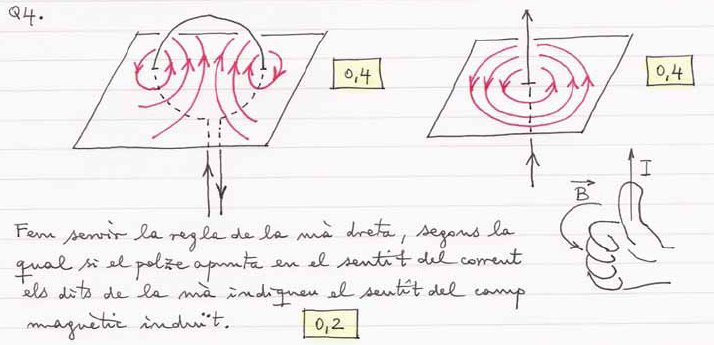 Q4.
0,4
0,4
I
B
Fem servir la regla de la mà dreta, segons la
qual si el polze apunta en el sentit del corrent
els dits de la mà indiquen el sentit del camp
magnètic induït.
0,2